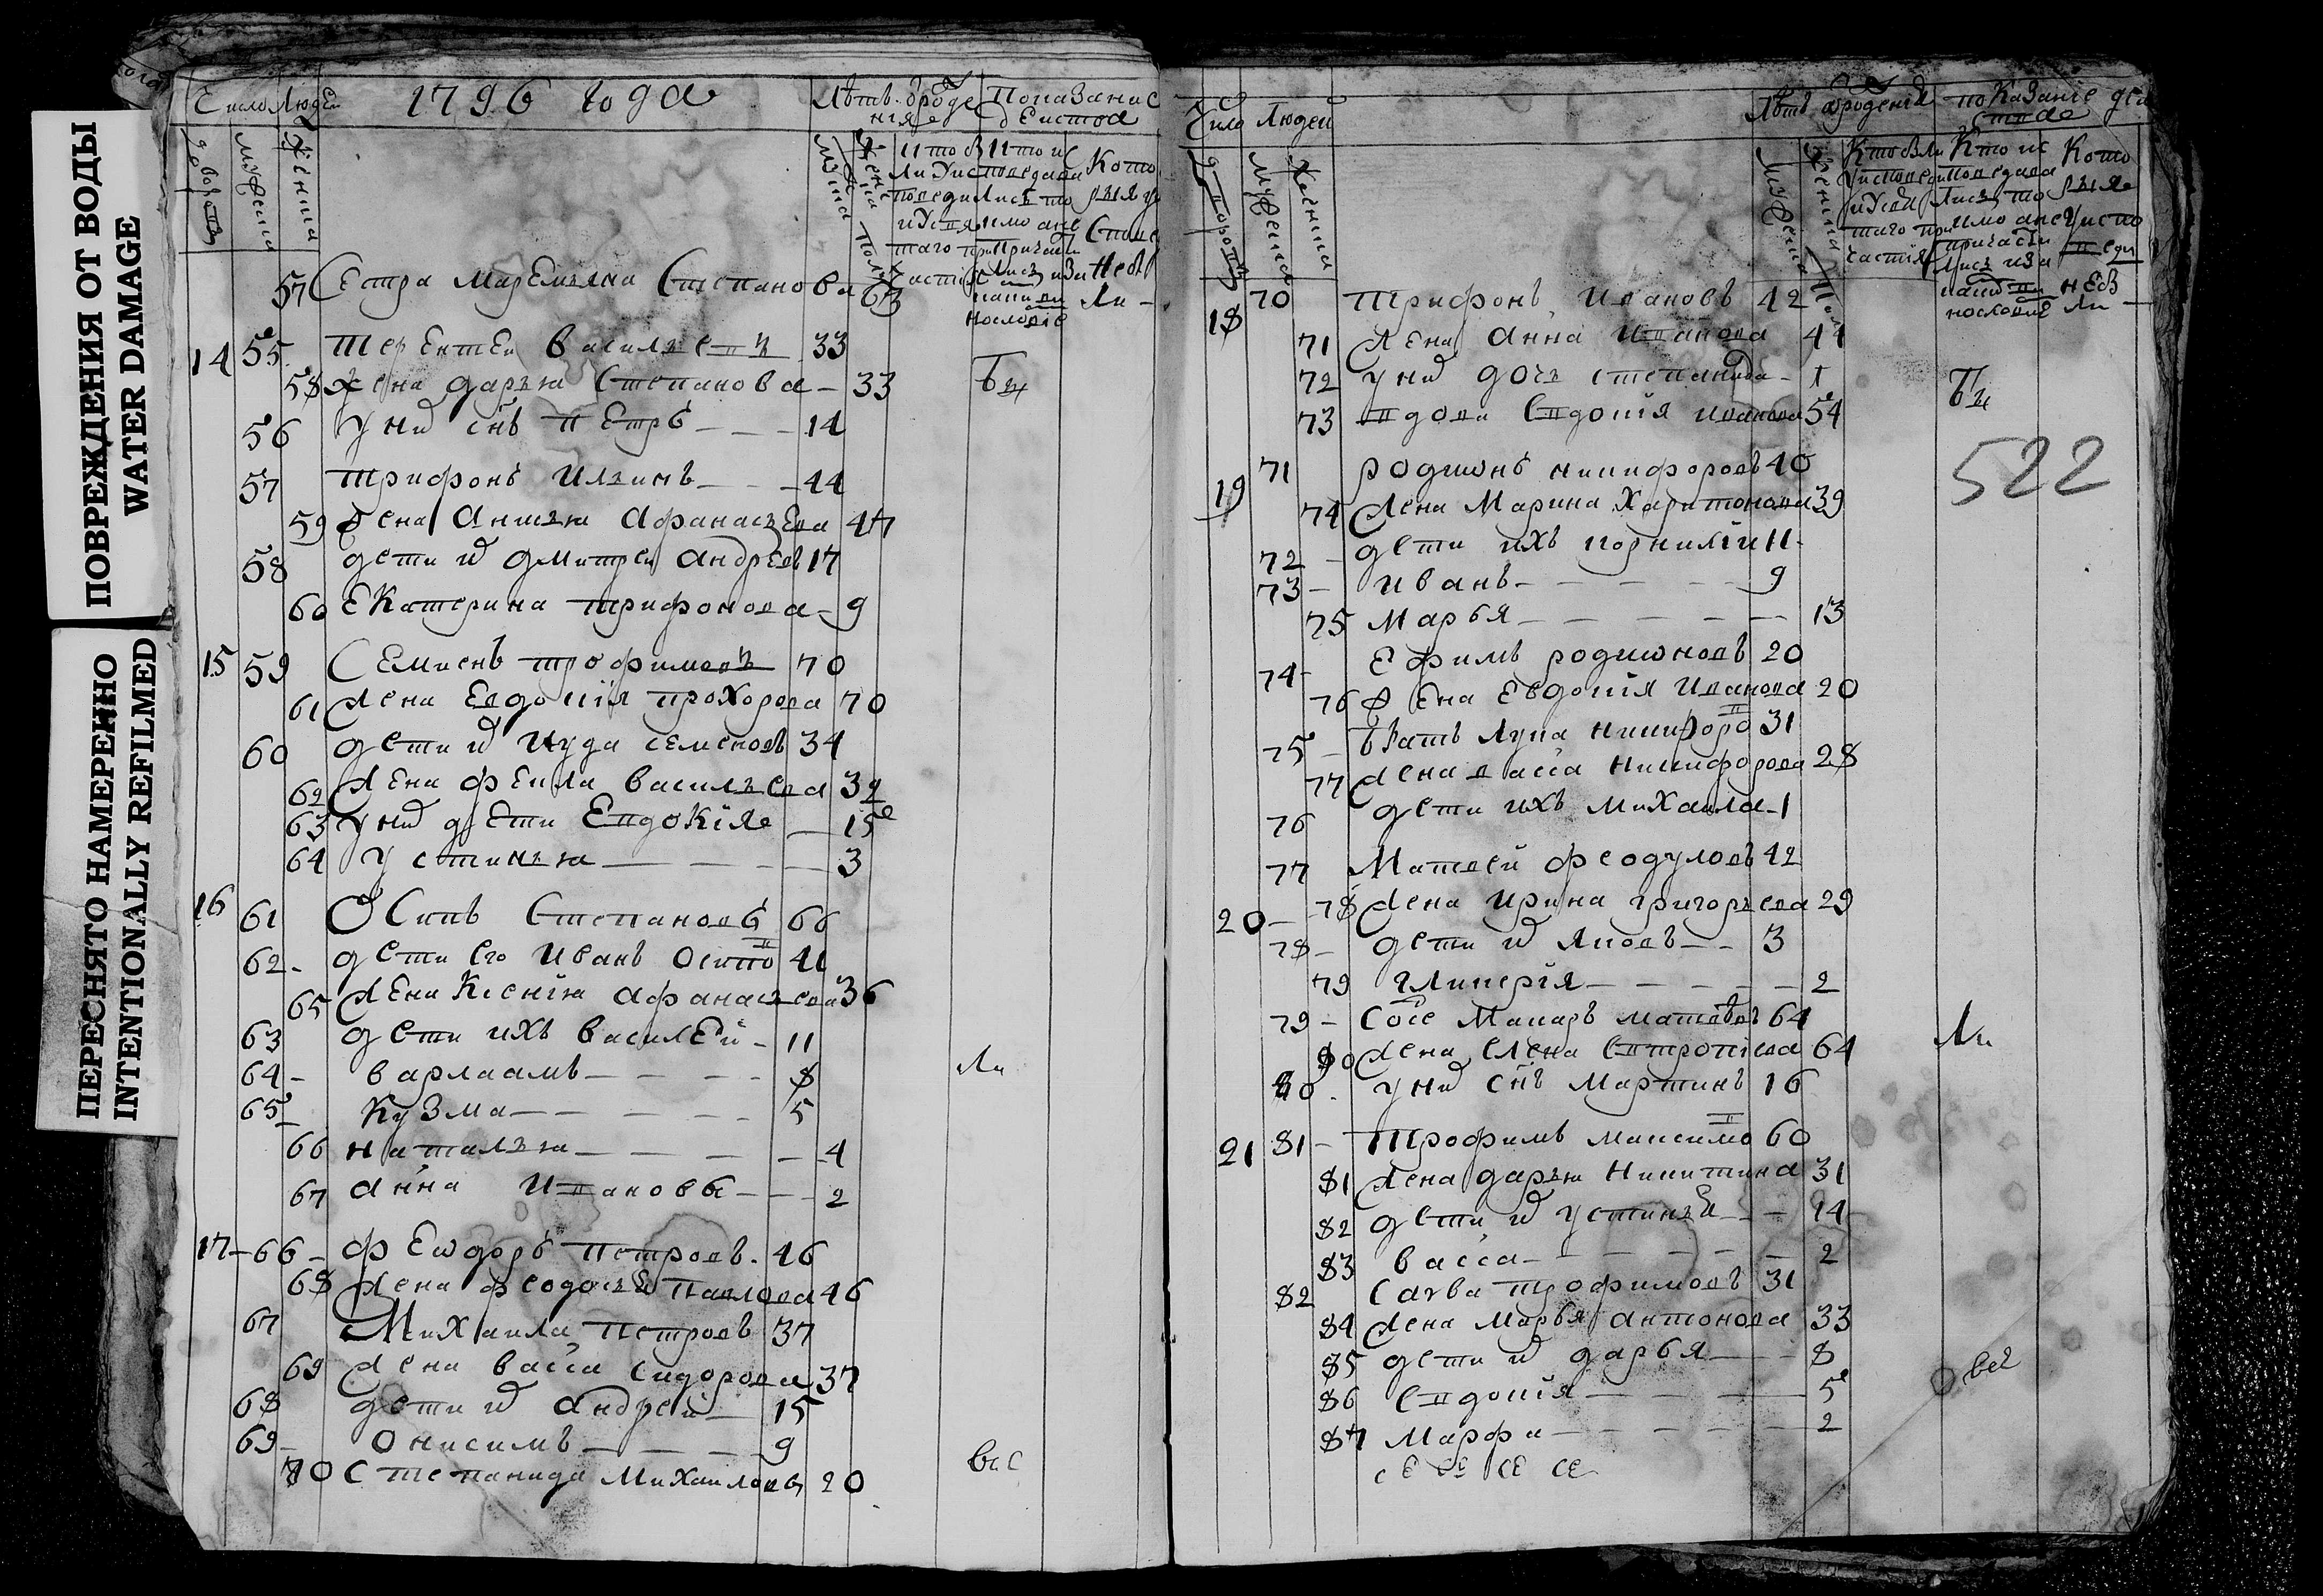 ПОВРЕЖДЕНИЯ ОТ ВОДЫ
WATER DAMAGE
ПЕРЕСНЯТО НАМЕРЕННО
INTENTIONALLY REFILMED
Число Людей 1796 года Лѣтъ рожде показание
57 Сестра Маремьяна Степанова 63
14 55 терентеи васильевъ 33
58 жена дарья Степанова - 33
56 у них снъ петръ - - - 14
57 трифонъ Ильинъ - - - 44
59 жена Анисья Афанасьева 47
58 дети их дмитреи андреевъ 17
60 Екатерина трифонова - 9
15 59 Семионъ трофимовъ 70
61 жена Евдокия прохорова 70
60 дети их иуда семеновъ 34
62 жена фекла васильева 32
63 у них дети Евдокия - 15
64 устинья - - - 3
16 61 Осипъ Степановъ 66
62 - дети его Иванъ осипов 41
65 жена Ксения афанасьева 36
63 дети ихъ василей - 11
64 - варлаамъ - - - - 8
65 - Кузма - - - - 5
Ли
66 наталья - - - - 4
67 анна Ивановы - - - 2
17 - 66 - феодоръ петровъ 46
68 жена феодосья павлова 46
67 Михаила петровъ 37
69 жена васса сидорова 37
68 дети их андрей - 15
69 - онисимъ - - - 9
70 степанида михаилова 20
все
Число Людей Лѣтъ от рождения показание
18 70 трифонъ Ивановъ 42
71 жена анна Иванова 44
72 у них дочь степанида - 1
73 вдова Евдокия иванова 54
522
19 71 родионъ никифоровъ 40
74 жена Марина Харитонова 39
72 - дети ихъ корнилий 11 -
73 - иванъ - - - - 9
75 Марья - - - - 13
74 - Ефимъ родионовъ 20
76 жена Евдокия Иванова 20
75 - братъ лука никифоров 31
77 жена васса никифорова 28
76 дети ихъ михаила - 1
77 Матвей феодуловъ 42
20 - 78 жена ирина григорьева 29
78 - дети их яковъ - - 3
79 гликерия - - - - 2
79 - Макаръ матвеевъ 64
80 жена елена 64
Ли
80 - у них снъ мартинъ 16
21 81 - Трофимъ максимов 60
81 жена дарья никитина 31
82 дети их устинья - - 14
83 васса - - - - 2
82 савва трофимовъ 31
84 жена марья антонова 33
85 дети их дарья - - - 8
все
86 евдокия - - - - 5
87 марфа - - - - 2